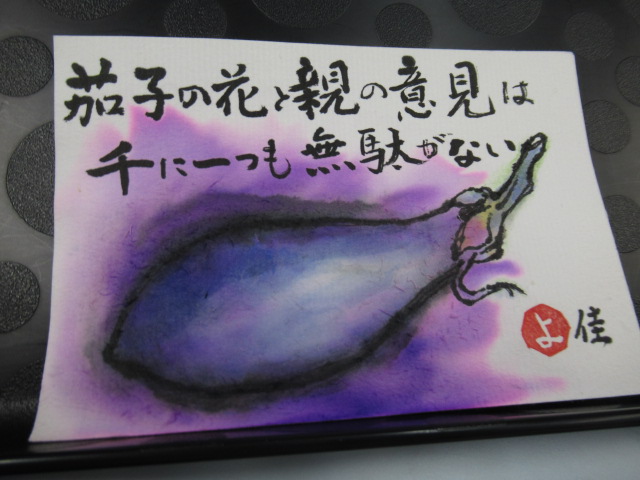 茄子の花と親の意見は
千に一つも無駄がない
よ
佳